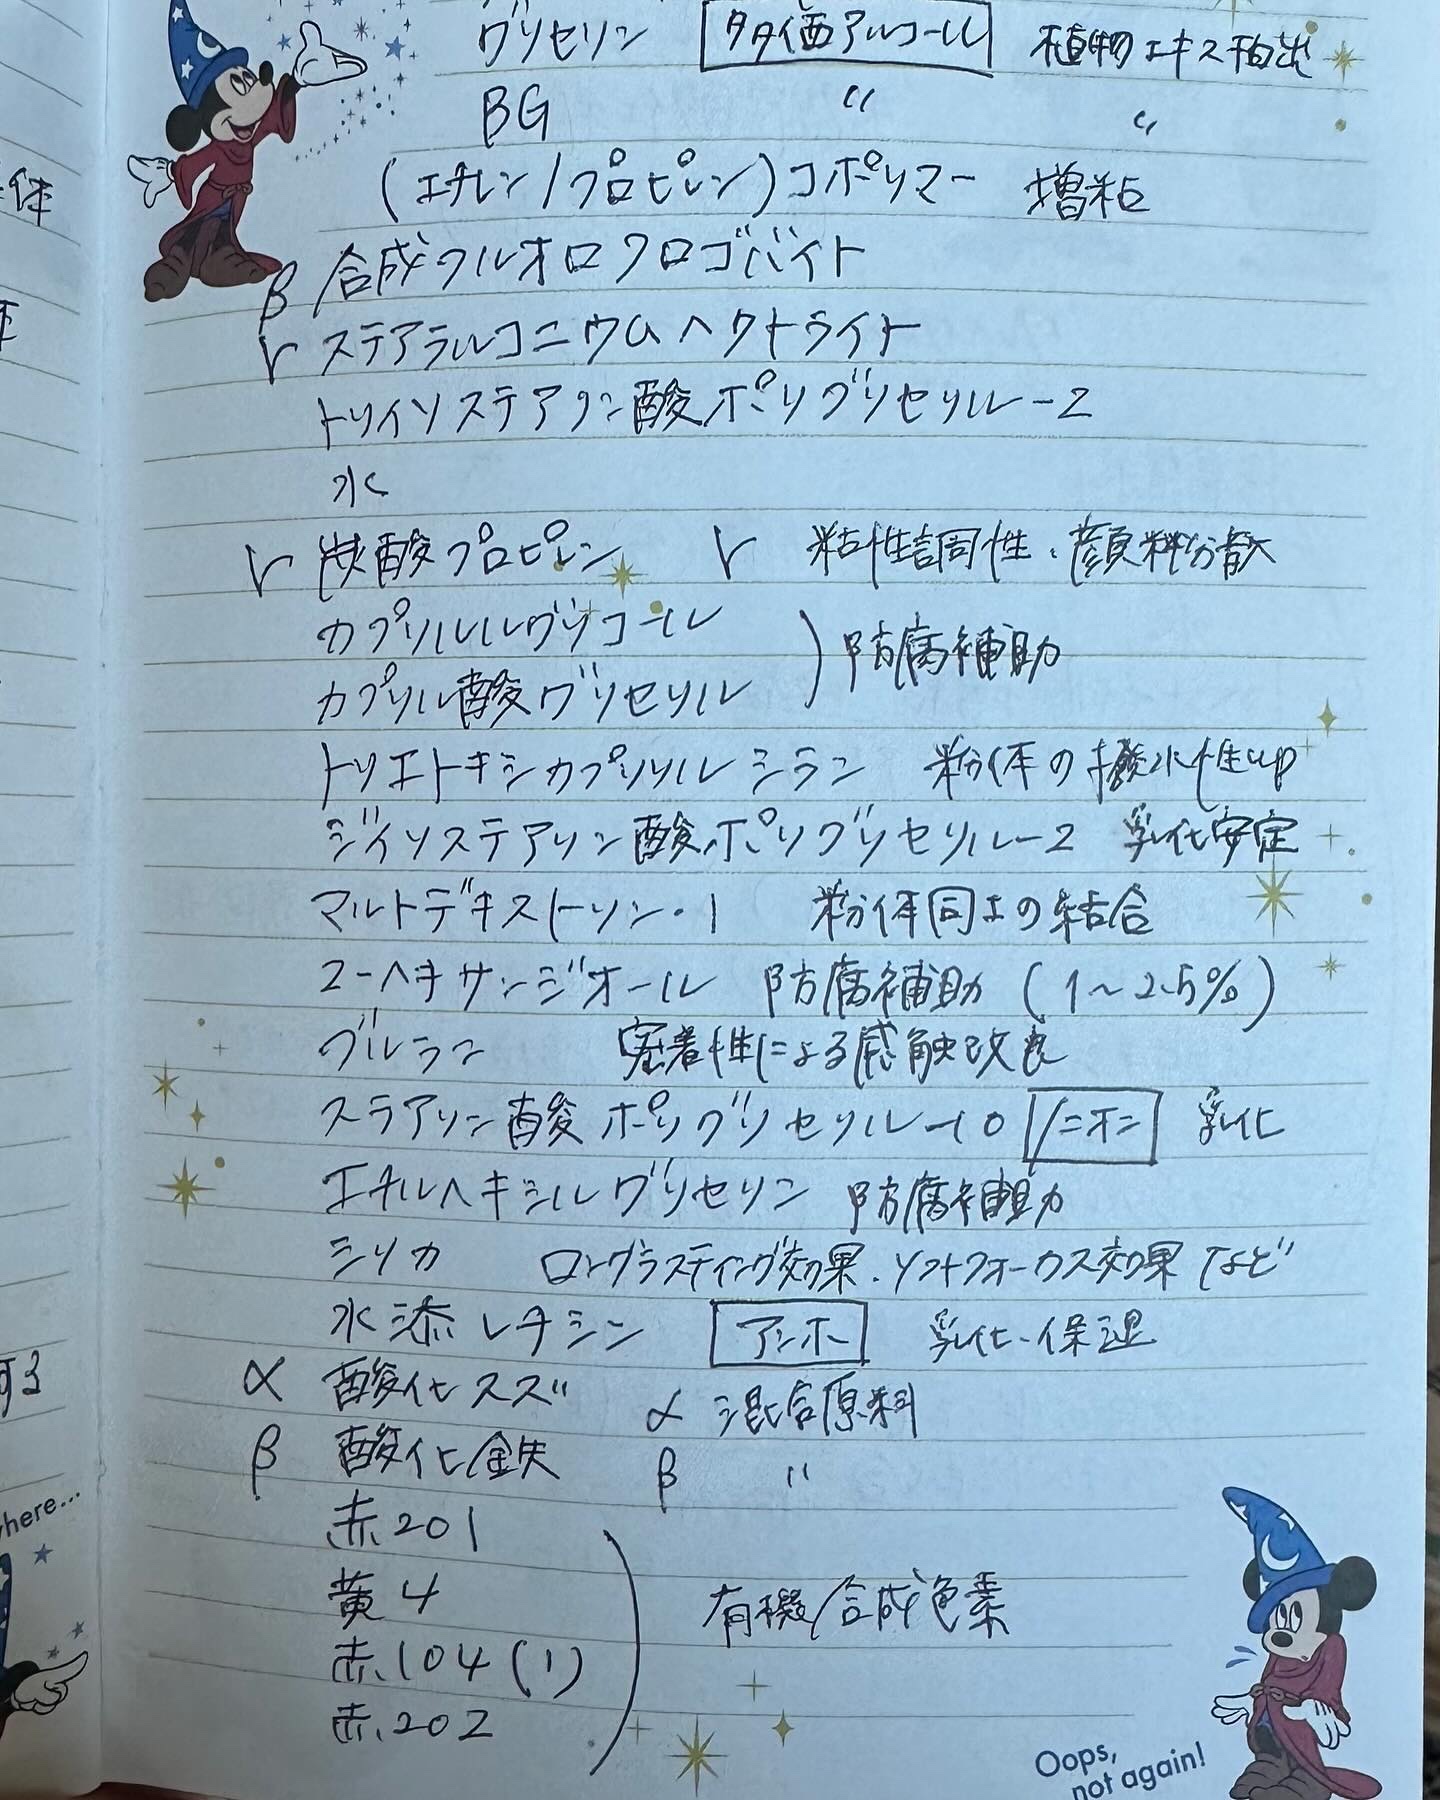 グリセリン 多価アルコール 植物エキス抽出
BG 〃 〃
(エチレン/プロピレン)コポリマー 増粘
β 合成フルオロフロゴパイト
r ステアラルコニウムヘクトライト
トリイソステアリン酸ポリグリセリル-2
水
r 炭酸プロピレン r 粘性調同性・顔料分散
カプリルルグリコール
カプリル酸グリセリル
防腐補助
トリエトキシカプリリルシラン 粉体の撥水性up
ジイソステアリン酸ポリグリセリル-2 乳化安定
マルトデキストリン・1 粉体同士の結合
2-ヘキサンジオール 防腐補助 (1〜2.5%)
プルラン 密着性による感触改良
ステアリン酸ポリグリセリル-10 ノニオン 乳化
エチルヘキシルグリセリン 防腐補助
シリカ ロングラスティング効果.ソフトフォーカス効果 など
水添レチシン アンホ 乳化・保湿
α 酸化スズ α 混合原料
β 酸化鉄 β 〃
赤201
黄4
赤104(1)
赤202
有機合成色素
here...
Oops,
not again!